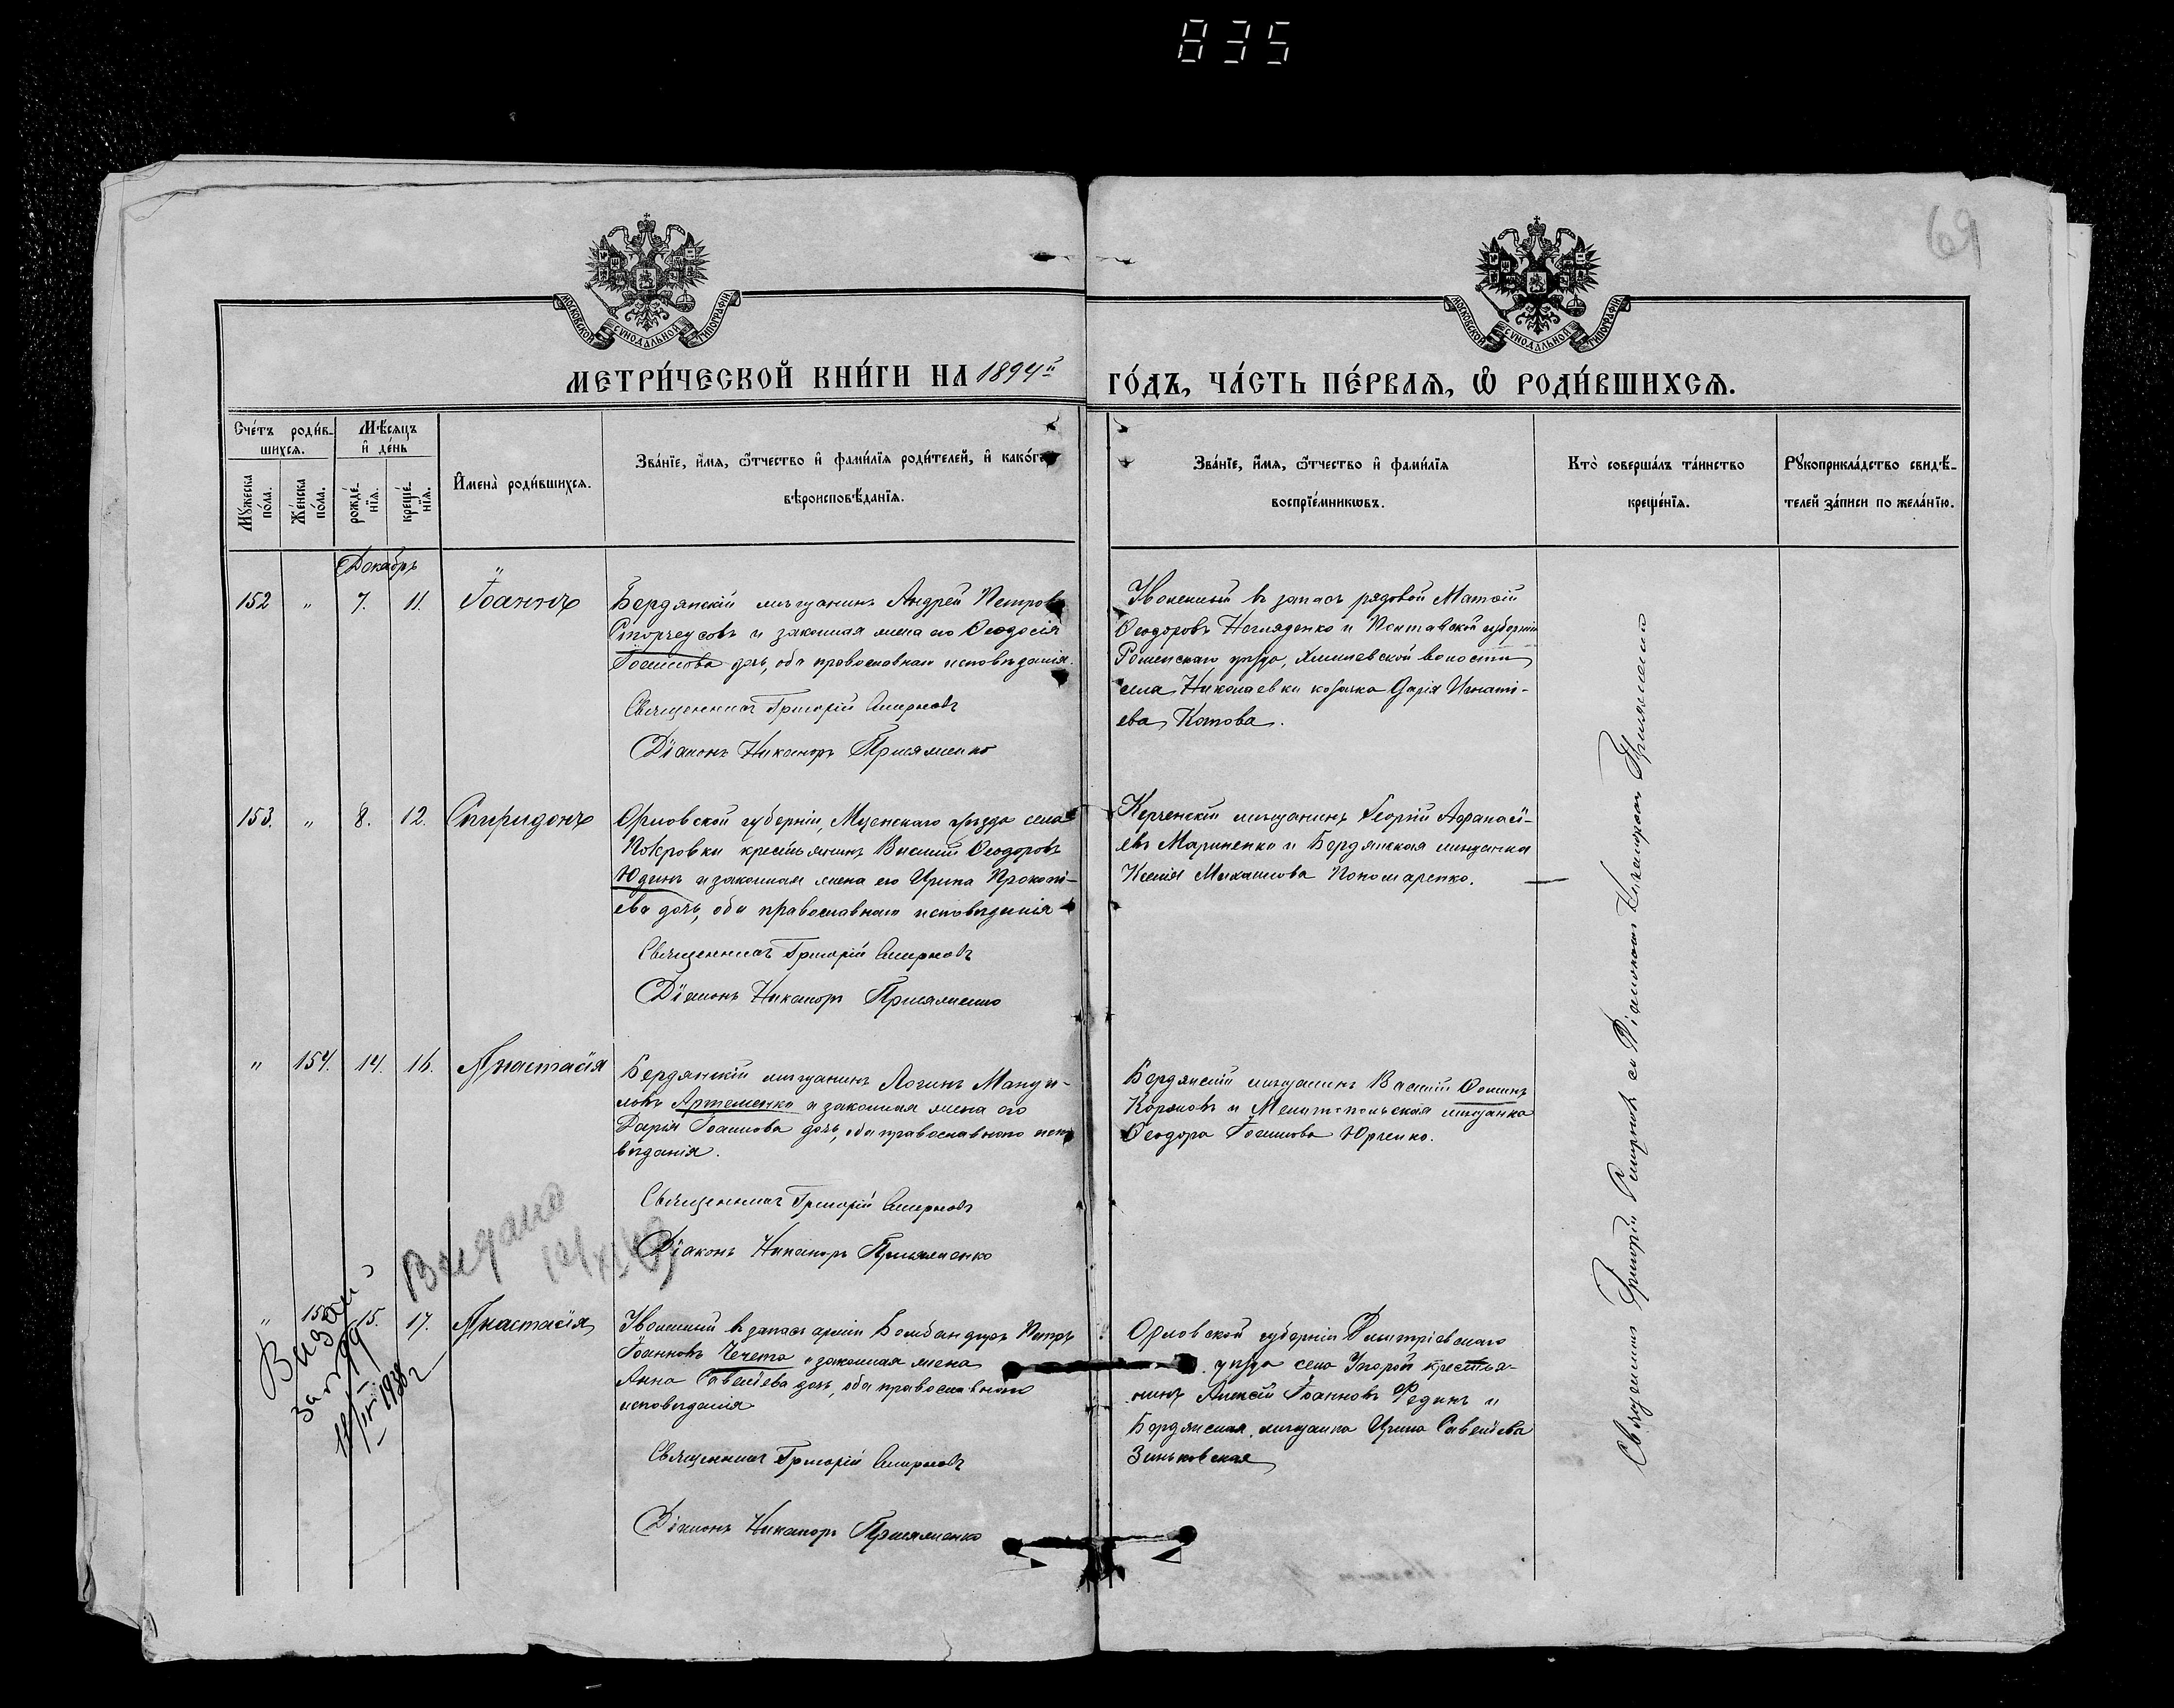 835
69
МОСКОВСКОЙ СУНОДАЛЬНОЙ ТИПОГРАФІИ
МОСКОВСКОЙ СУНОДАЛЬНОЙ ТИПОГРАФІИ
МЕТРИ́ЧЕСКОЙ КНИ́ГИ НА 1894й
ГО́ДЪ, ЧА́СТЬ ПЕ́РВАѦ, Ѡ҆ РОДИ́ВШИХСѦ.
Сче́тъ роди́в-
шихсѧ.
Мѣ́сѧцъ
и҆ де́нь
Мꙋ́жеска по́ла.
Же́нска по́ла.
рожде́-
нїѧ.
креще́-
нїѧ.
И҆мена̀ роди́вшихсѧ.
Зва́нїе, и҆́мѧ, ѻ҆́тчество и҆ фами́лїѧ роди́телей, и҆ како́гѡ
вѣроисповѣ́данїѧ.
Зва́нїе, и҆́мѧ, ѻ҆́тчество и҆ фами́лїѧ
воспрїе́мникѡвъ.
Кто̀ соверша́лъ та́инство
креще́нїѧ.
Рꙋкоприкла́дство свидѣ́-
телей за́писи по жела́нїю.
Декабрь
152 " 7. 11. Іоаннъ
Бердянскій мѣщанинъ Андрей Петровъ
Сторчеусовъ и законная жена его Ѳеодосія
Іоаннова дочь, оба православнаго исповѣданія.
Священникъ Григорій Смирновъ
Діаконъ Никаноръ Присяженко
Уволенный въ запасъ рядовой Матѳій
Ѳеодоровъ Негляденко и Полтавской губерніи
Роменскаго уѣзда, Хмелевской волости
села Николаевки козачка Дарія Игнаті-
ева Котова.
153. " 8. 12. Спиридонъ
Орловской губерніи, Мценскаго уѣзда села
Покровки крестьянинъ Василій Ѳеодоровъ
Юдинъ и законная жена его Ирина Прокопі-
ева дочь, оба православнаго исповѣданія
Священникъ Григорій Смирновъ
Діаконъ Никаноръ Присяженко
Керченскій мѣщанинъ Георгій Аѳанасі-
евъ Мариненко и Бердянская мѣщанка
Ксенія Михаилова Пономаренко.
" 154. 14. 16. Анастасія
Бердянскій мѣщанинъ Логинъ Мануи-
ловъ Артеменко и законная жена его
Дарія Іоаннова дочь, оба православнаго испо
вѣданія.
Священникъ Григорій Смирновъ
Діаконъ Никаноръ Присяженко
Бердянскій мѣщанинъ Василій Ѳоминъ
Коржовъ и Мелитопольская мѣщанка
Ѳеодора Іоаннова Юрченко.
Выдано
" 155. 15. 17. Анастасія
Уволенный въ запасъ арміи Бомбандиръ Петръ
Іоанновъ Чечета и законная жена
Анна Савельева дочь, оба православнаго
исповѣданія
Священникъ Григорій Смирновъ
Діаконъ Никаноръ Присяженко
Орловской губерніи Дмитріевскаго
уѣзда села Упорой крестья-
нинъ Алексій Іоанновъ Фединъ и
Бердянская мѣщанка Ирина Савельева
Зиньковская
за № 99
11/IV 1938 г
Священникъ Григорій Смирновъ съ Діакономъ Никаноромъ Присяженко